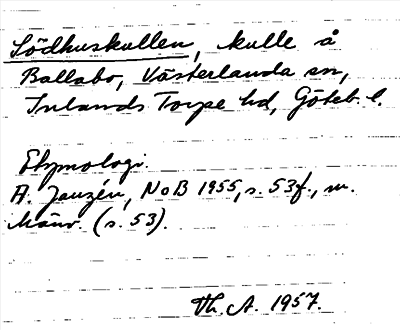 Södhuskullen, kulle å
Ballabo, Västerlanda sn,
Inlands Torpe hd, Göteb. l.
Etymologi.
A. Janzén, NoB 1955, s. 53f., m.
hänv. (s. 53).
Th. A. 1957.